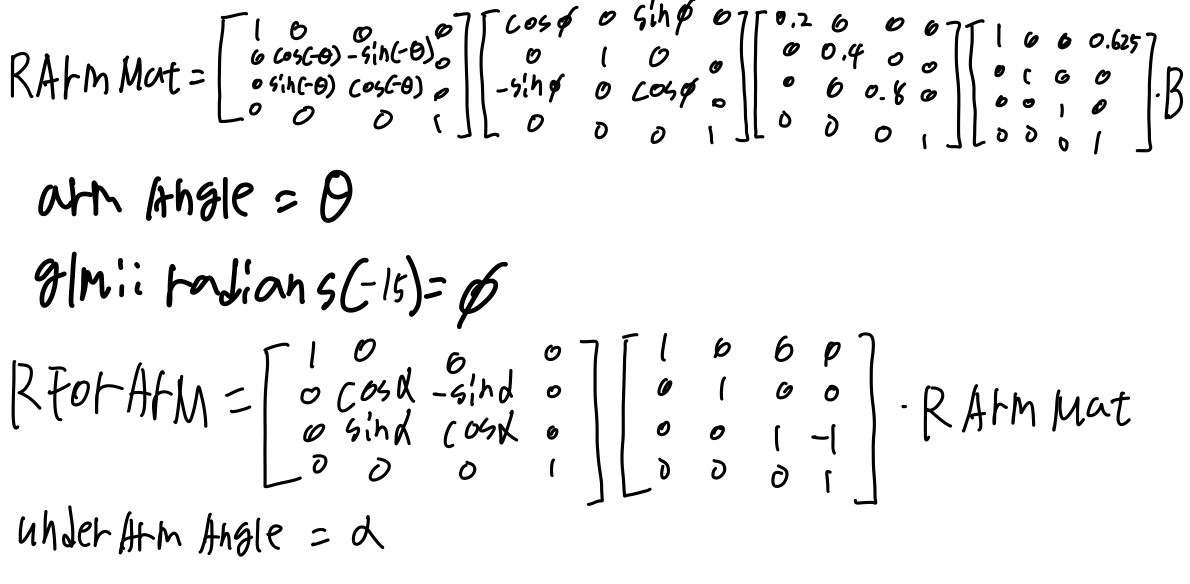 RArmMat = [1 0 0 0; 0 cos(-θ) -sin(-θ) 0; 0 sin(-θ) cos(-θ) 0; 0 0 0 1] [cosϕ 0 sinϕ 0; 0 1 0 0; -sinϕ 0 cosϕ 0; 0 0 0 1] [0.2 0 0 0; 0 0.4 0 0; 0 0 0.8 0; 0 0 0 1] [1 0 0 0.625; 0 1 0 0; 0 0 1 0; 0 0 0 1] · B
arm Angle = θ
glm:: radians(-15) = ϕ
RForArM = [1 0 0 0; 0 cosα -sinα 0; 0 sinα cosα 0; 0 0 0 1] [1 0 0 0; 0 1 0 0; 0 0 1 -1; 0 0 0 1] · RArmMat
underArm Angle = α